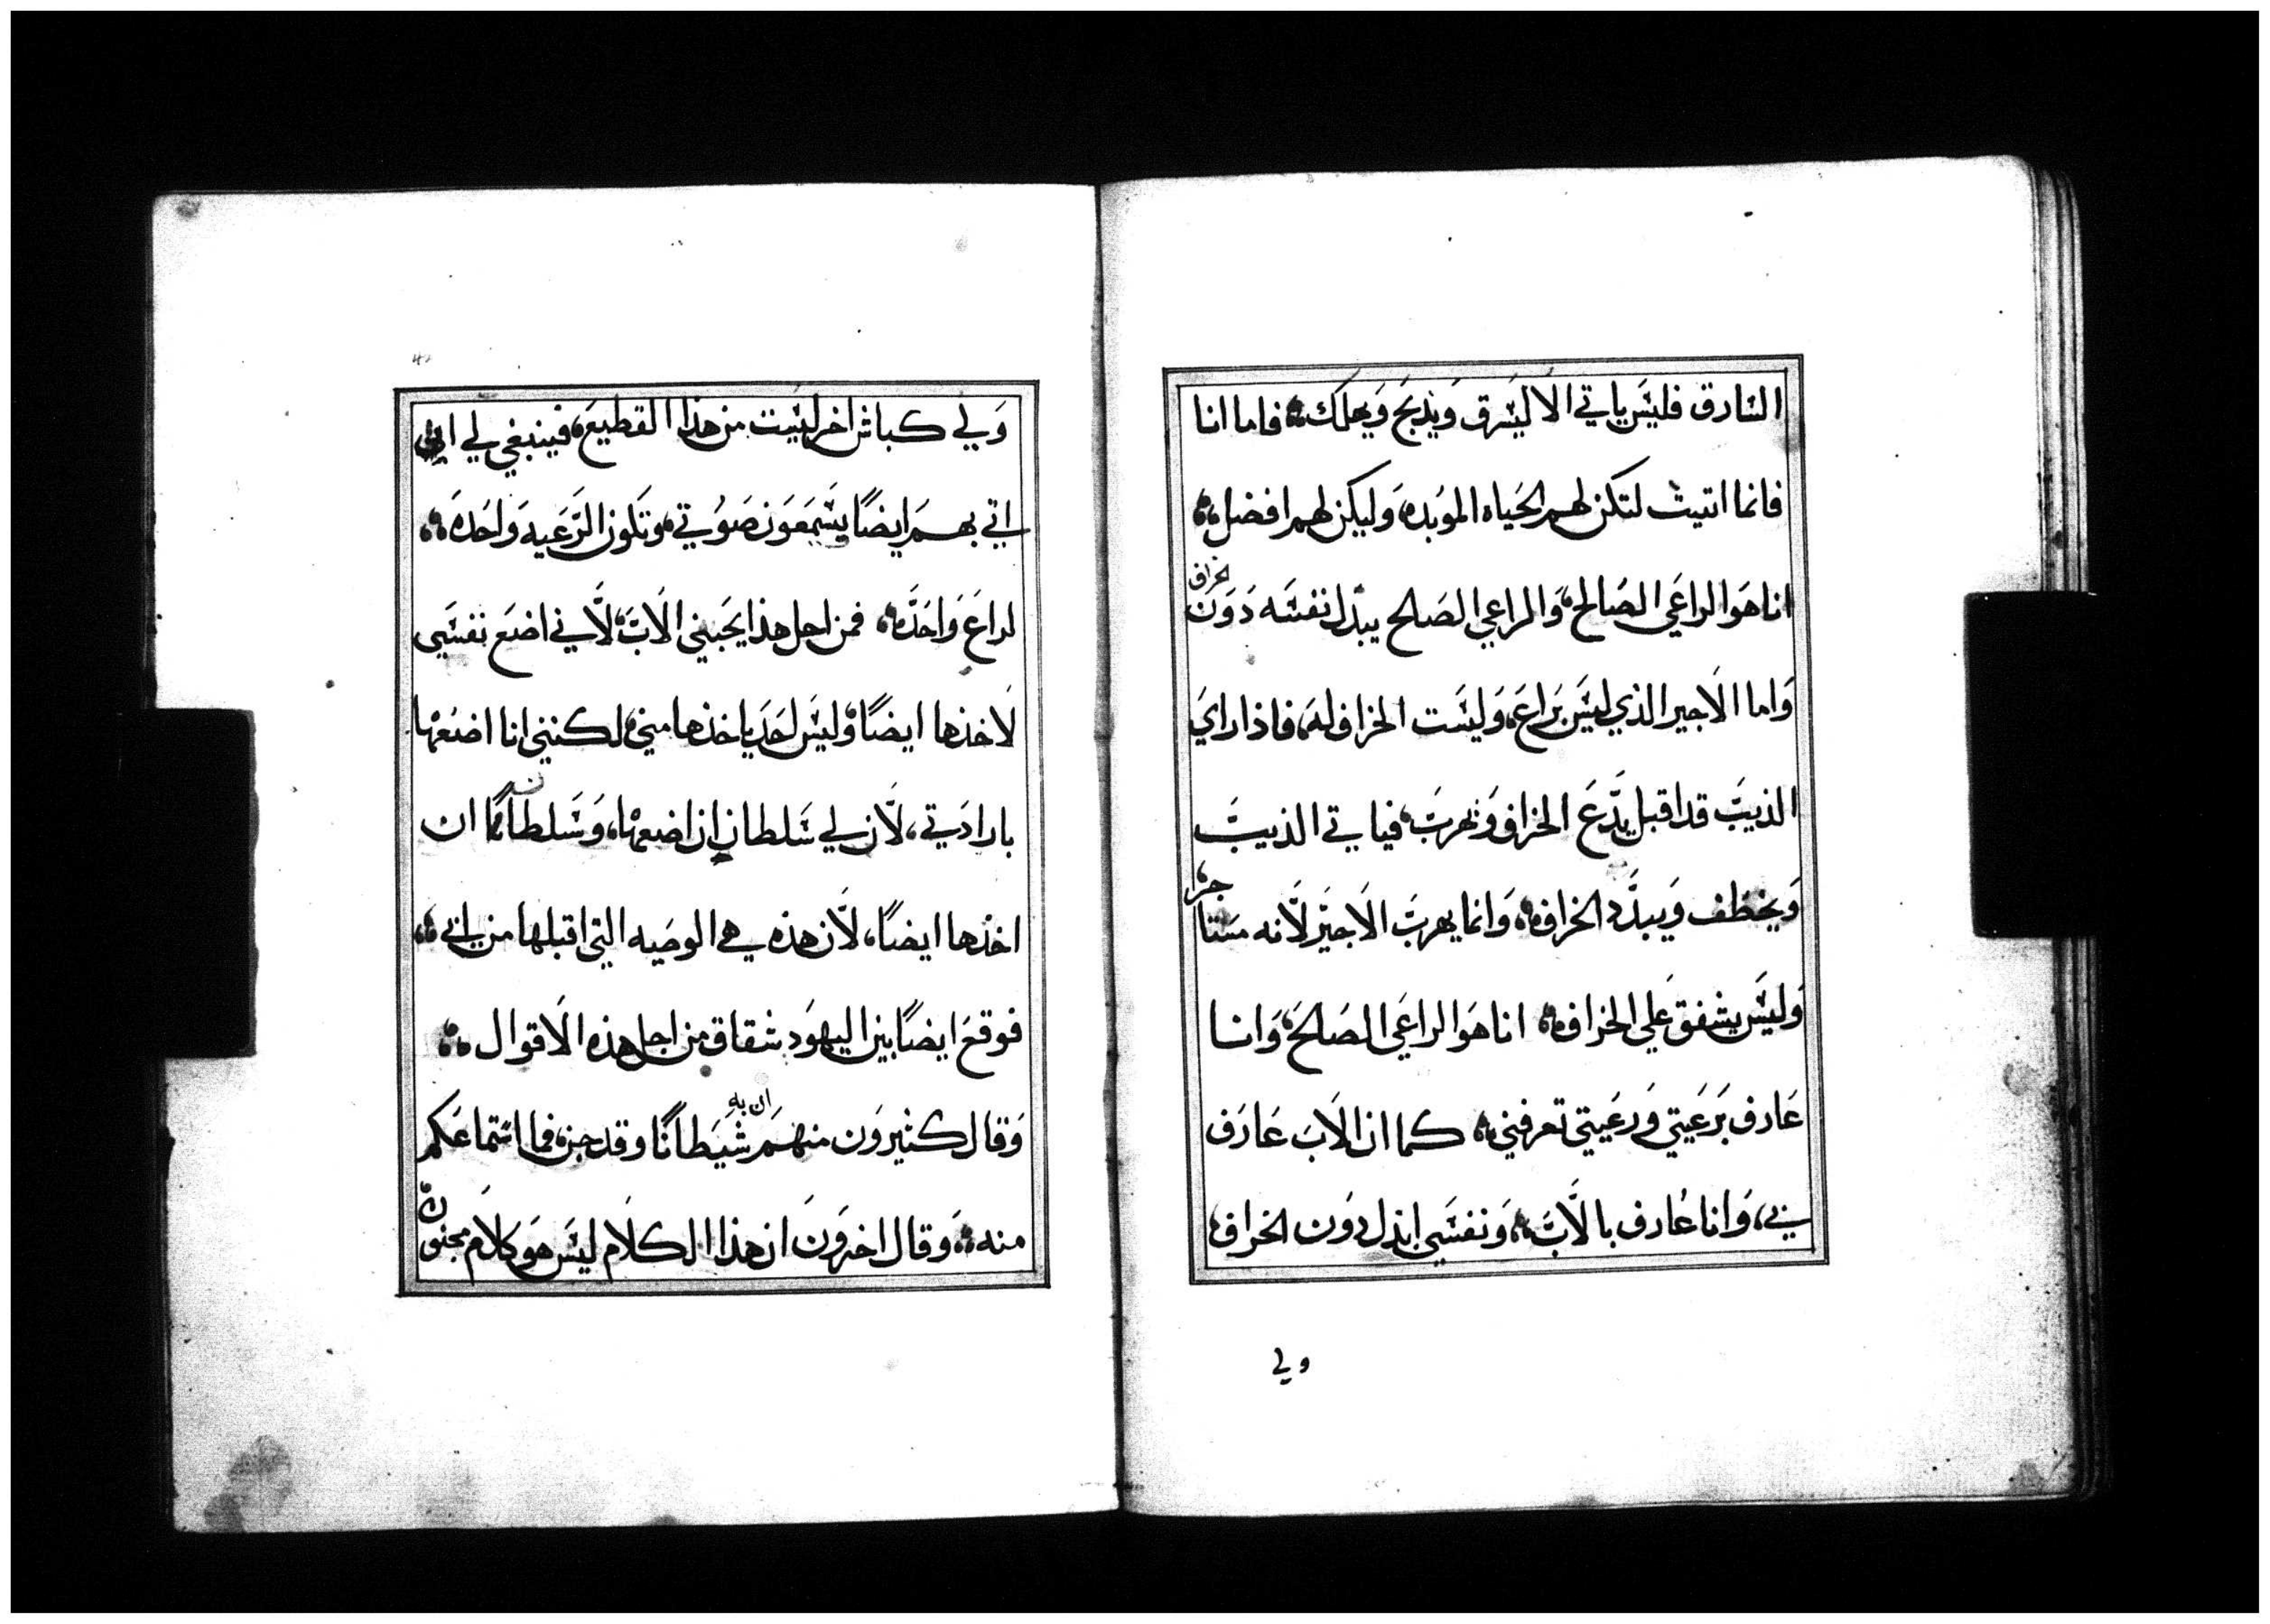 السارق فليس ياتي الا ليسرق ويذبح ويهلك، فاما انا
فانما اتيت لتكن لهم الحياه الموبده، وليكن لهم افضل،
انا هوا الراعي الصالح، والراعي الصلح يبدل نفسه دون الخراف
واما الاجير الذي ليس براع، وليست الخراف له، فاذا راي
الذيب قد اقبل يدع الخراف ويهرب، فياتي الذيب
ويخطف ويبدد الخراف، وانما يهرب الاجير لانه مستاجر،
وليس يشفق علي الخراف، انا هوا الراعي الصالح، وانا
عارف برعيتي ورعيتي تعرفني، كما ان الاب عارف
بي، وانا عارف بالاب، ونفسي ابذل دون الخراف،
ولي
ولي كباش اخر ليست من هذا القطيع، فينبغي لي ان
اتي بهم ايضا يسمعون صوتي، وتكون الرعيه واحده،
لراع واحد، فمن اجل هذا يحبني الاب، لاني اضع نفسي
لاخذها ايضا، وليس احد ياخذها مني، لكنني انا اضعها
بارادتي، لان لي سلطان ان اضعها، وسلطانا ان
اخذها ايضا، لان هذه هي الوصيه التي اقبلها من ابي،
فوقع ايضا بين اليهود شقاق من اجل هذه الاقوال،
وقال كثيرون منهم ان به شيطانا وقد جن، فما استماعكم
منه، وقال اخرون ان هذا الكلام ليس هو كلام مجنون،